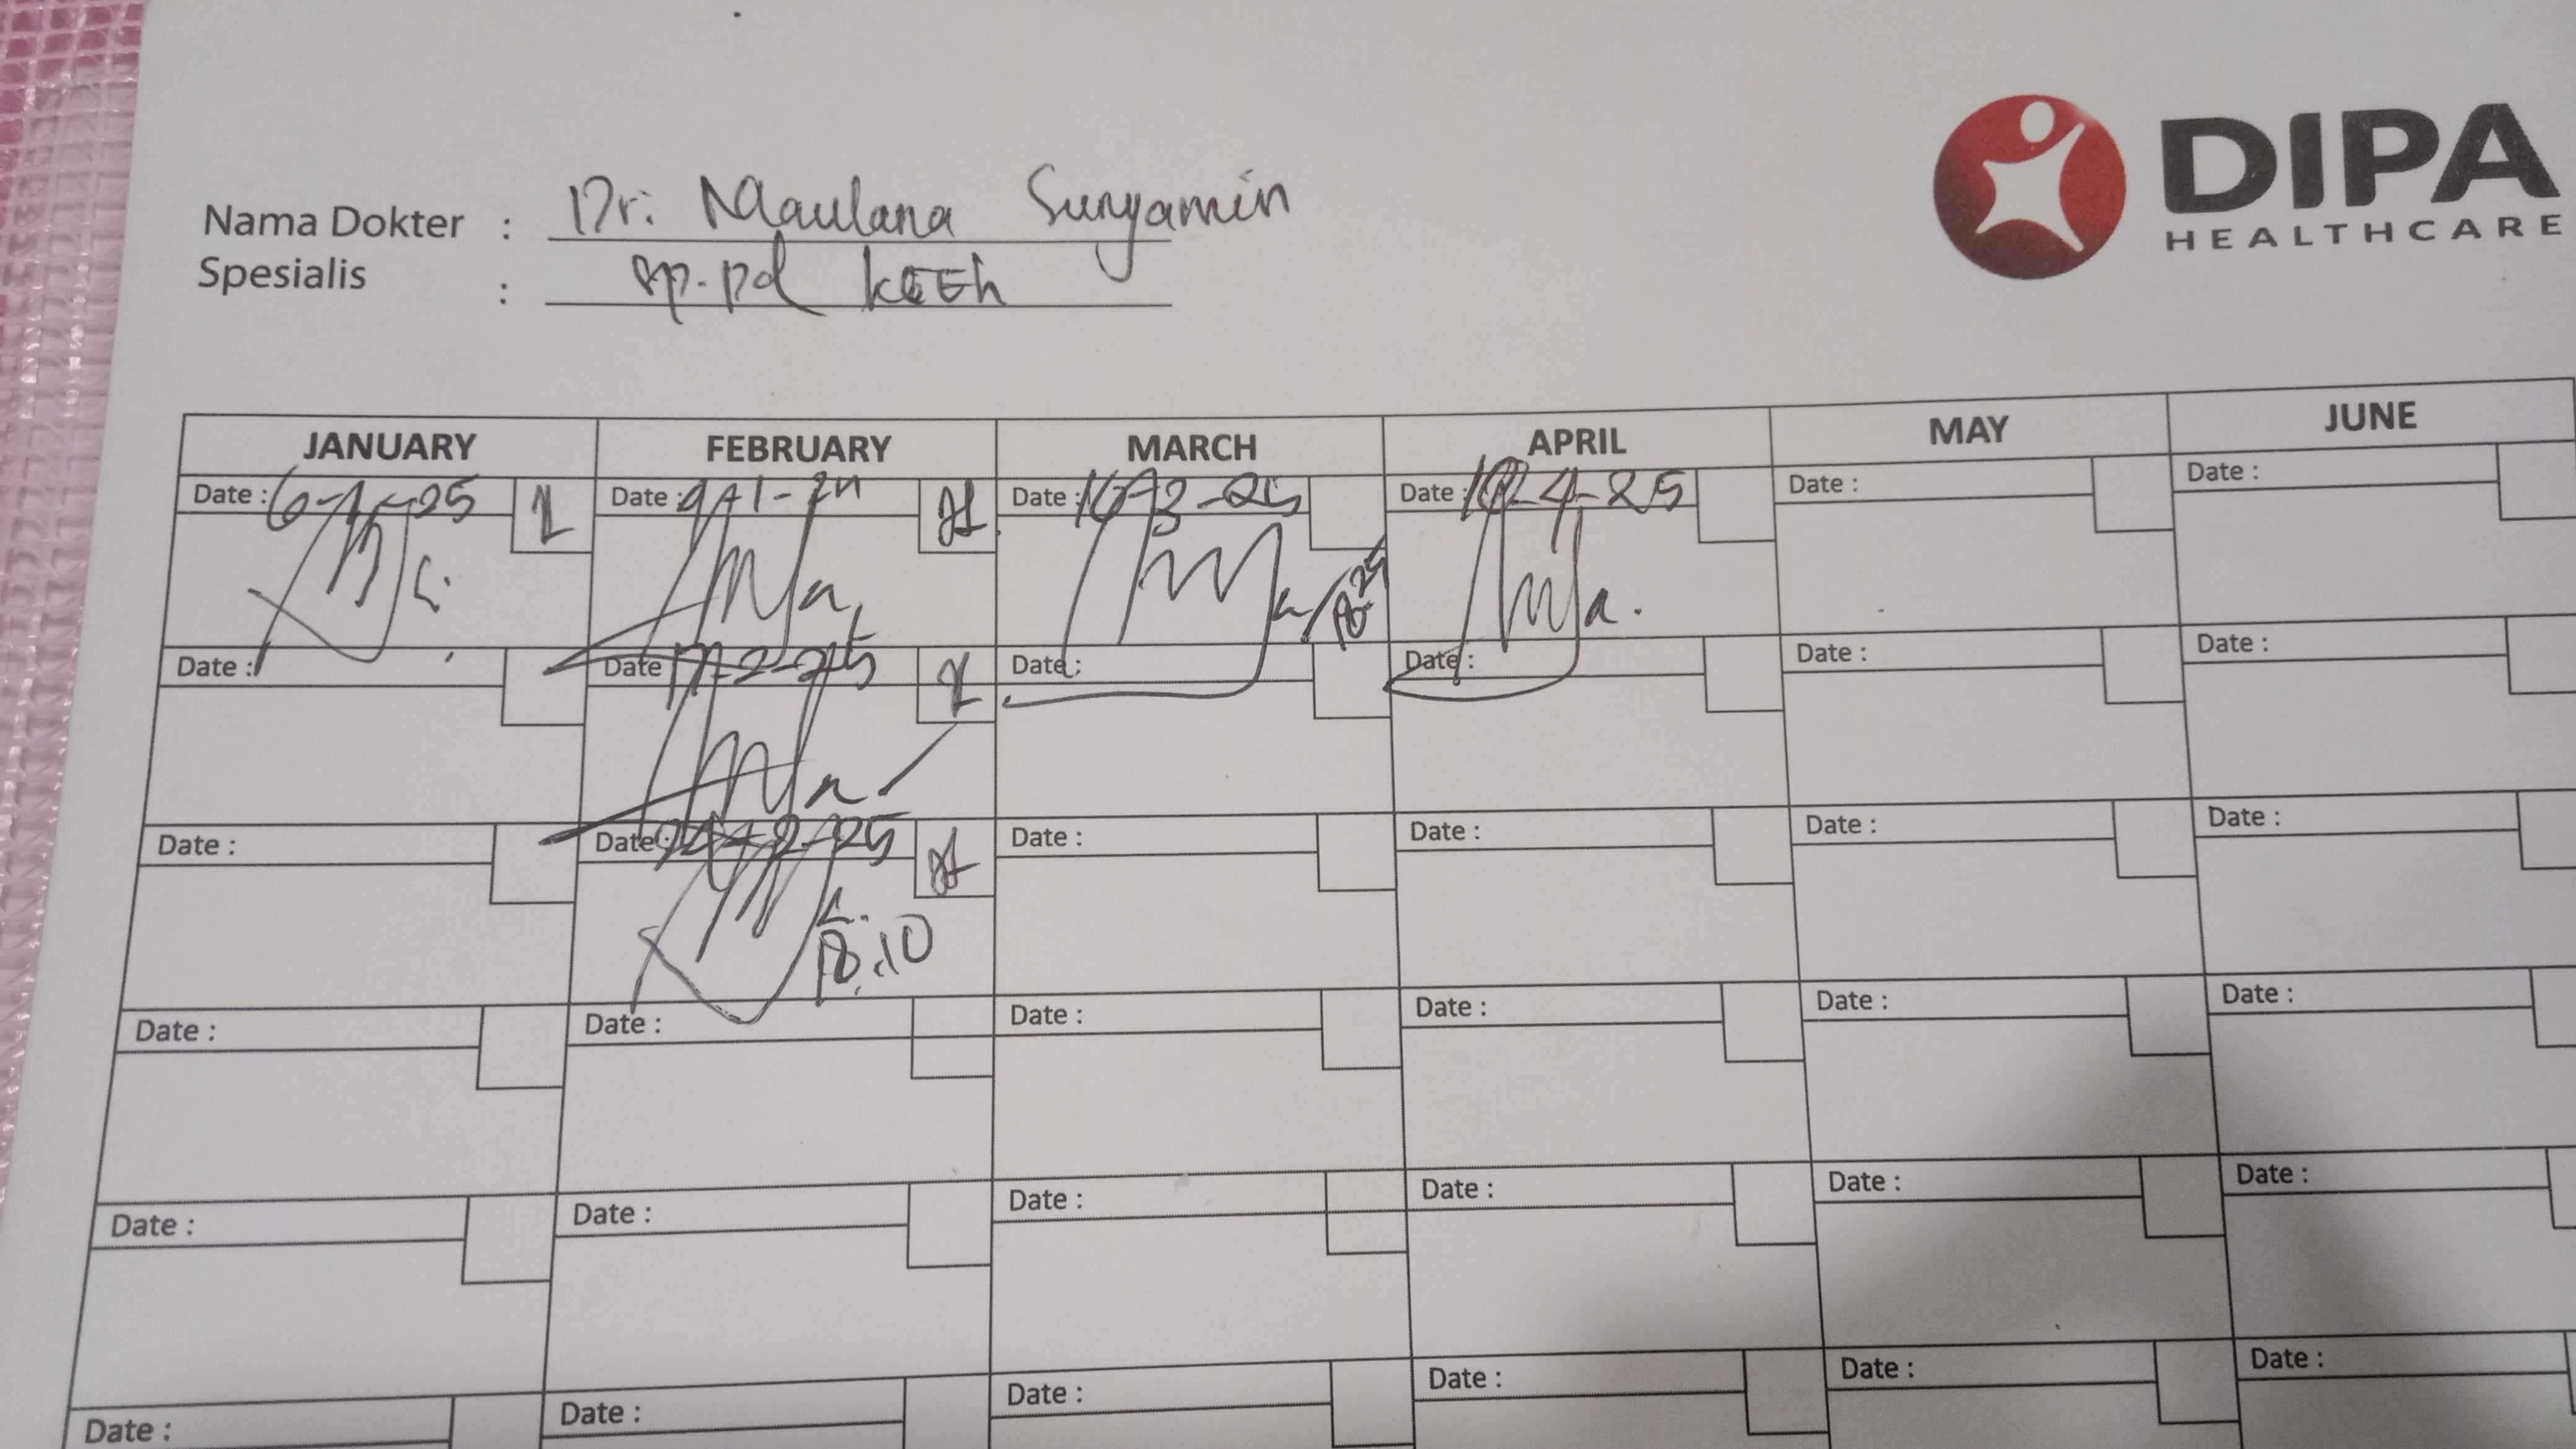 DIPA
HEALTHCARE
Nama Dokter : Dr. Maulana Suryamin
Spesialis : sp.pd
JANUARY FEBRUARY MARCH APRIL MAY JUNE
Date : 6-1-25 Date : Date : 10-3-25 Date : 10-4-25 Date : Date :
Date : Date : 17-2-25 Date : Date : Date : Date :
Date : Date : 24-2-25 Date : Date : Date : Date :
18.10
Date : Date : Date : Date : Date : Date :
Date : Date : Date : Date : Date : Date :
Date : Date : Date : Date : Date : Date :